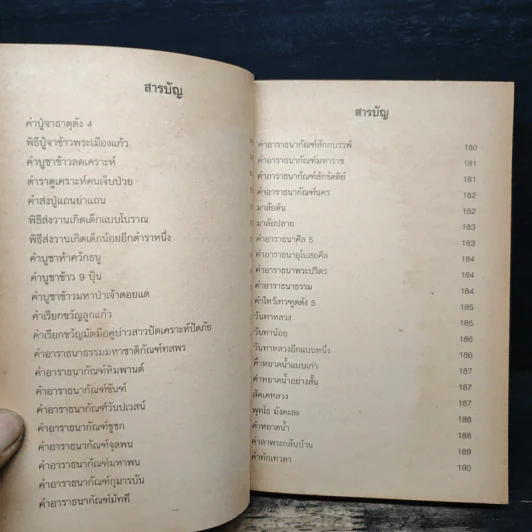 สารบัญ
คำปู่จาธาตุตัง 4
พิธีปู่จาข้าวพระเมืองแก้ว
คำบูชาข้าวลดเคราะห์
ตำราดูเคราะห์คนเจ็บป่วย
คำส่งปู่แถนย่าแถน
พิธีส่งวานเกิดเด็กแบบโบราณ
พิธีส่งวานเกิดเด็กน้อยอีกตำราหนึ่ง
คำบูชาท้าควักธนู
คำบูชาข้าว 9 ปุ้น
คำบูชาข้าวมหาป่าเจ้าดอยแด
คำเรียกขวัญลูกแก้ว
คำเรียกขวัญมัดมือคู่บ่าวสาวปัดเคราะห์ปัดภัย
คำอาราธนาธรรมมหาชาติกัณฑ์ทสพร
คำอาราธนากัณฑ์หิมพานต์
คำอาราธนากัณฑ์ขันฑ์
คำอาราธนากัณฑ์วันปเวสน์
คำอาราธนากัณฑ์ชูชก
คำอาราธนากัณฑ์จุลพน
คำอาราธนากัณฑ์มหาพน
คำอาราธนากัณฑ์กุมารบัน
คำอาราธนากัณฑ์มัทที
สารบัญ
คำอาราธนากัณฑ์สักกบรรพ์ 180
คำอาราธนากัณฑ์มหาราช 181
คำอาราธนากัณฑ์สักขัตติย์ 181
คำอาราธนากัณฑ์นคร 182
มาลัยต้น 182
มาลัยปลาย 183
คำอาราธนาศีล 5 183
คำอาราธนาอุโบสถศีล 184
คำอาราธนาพระปริตร 184
คำอาราธนาธรรม 184
คำไหว้เทวฑูตตัง 5 185
วันทาหลวง 185
วันทาน้อย 186
วันทาหลวงอีกแบบหนึ่ง 186
คำหยาดน้ำแบบเก่า 187
คำหยาดน้ำอย่างสั้น 187
สัคเคหลวง 187
พุทโธ มังคะละ 188
คำหยาดน้ำ 188
คำลาพระกลับบ้าน 189
คำทักเทวดา 190